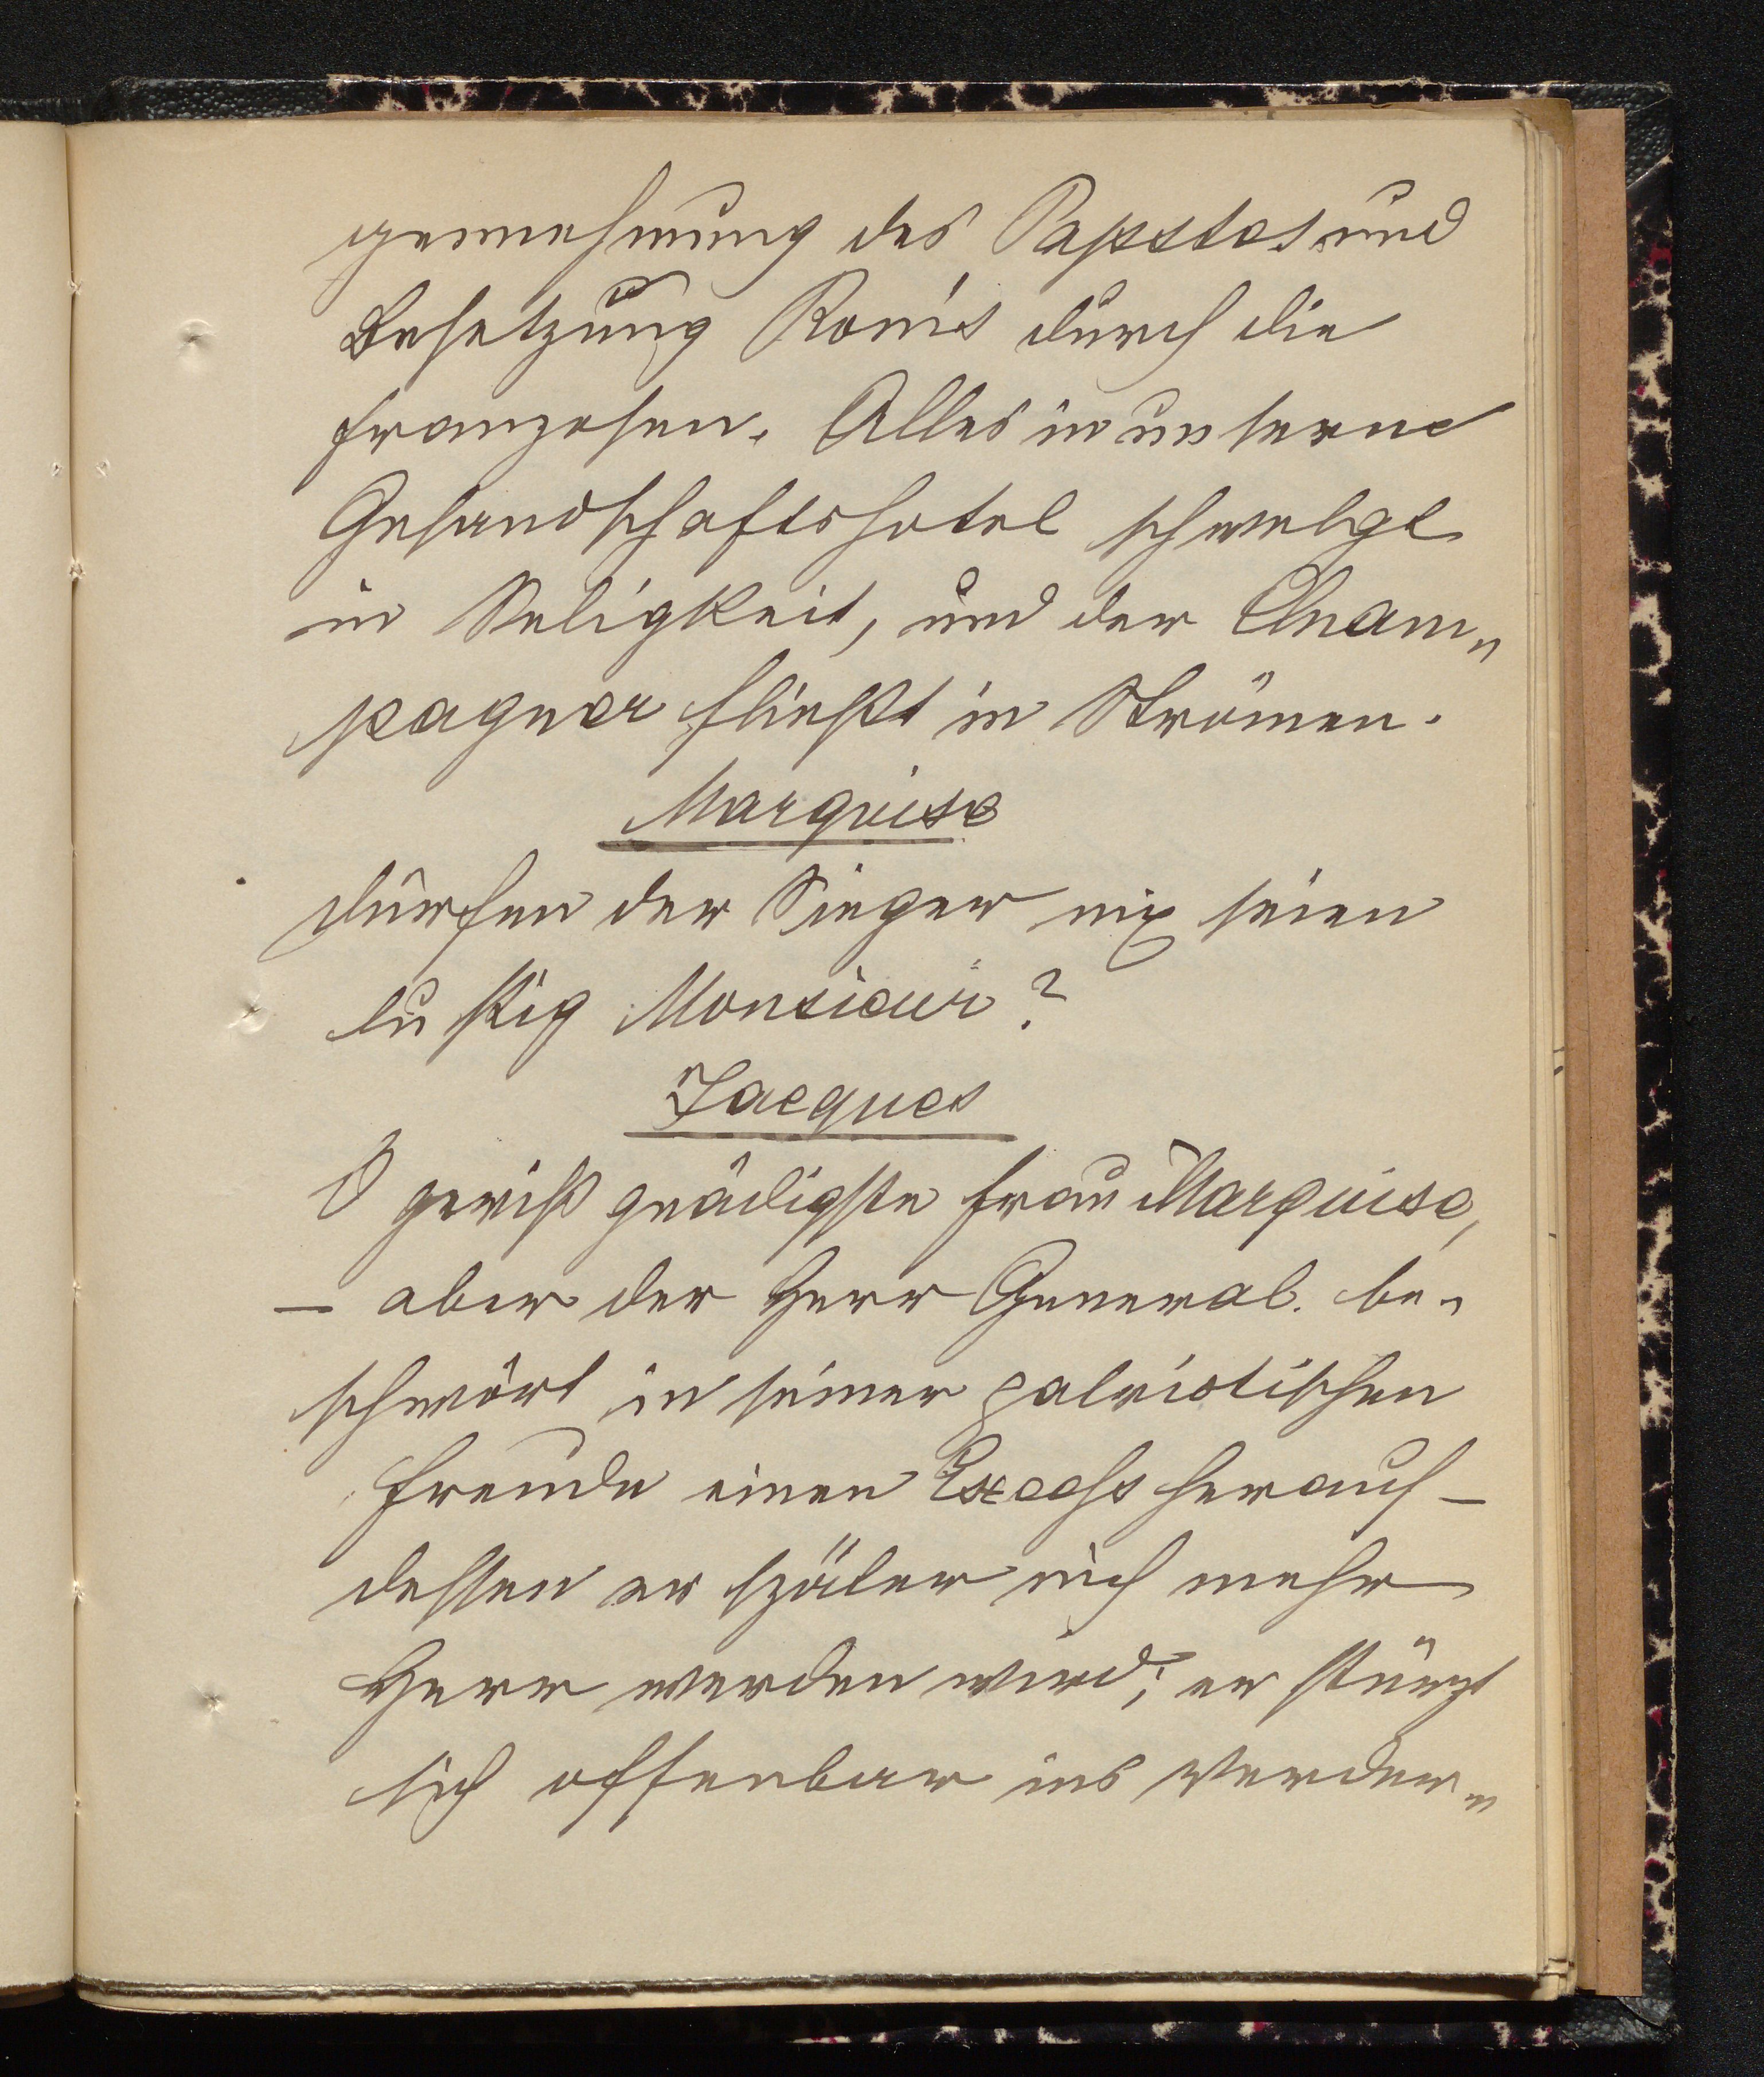 gennehmung des Papstes und
Besetzung Rom's durch die
Franzosen. Alles in unserne
Gesandschaftshotel schwelgt
in Seligkeit, und der Cham„
pagner fließt in Strömen.
Marquise
dürfen der Sieger nix seien
lustig Monsieur?
Jacques
O gewiß gnädigste Frau Marquise,
– aber der Herr General be„
schwört in seiner patriotischen
Freude einen Excess herauf –
dessen er später nich mehr
Herr werden wird; er stürzt
sich offenbar ins Verder„